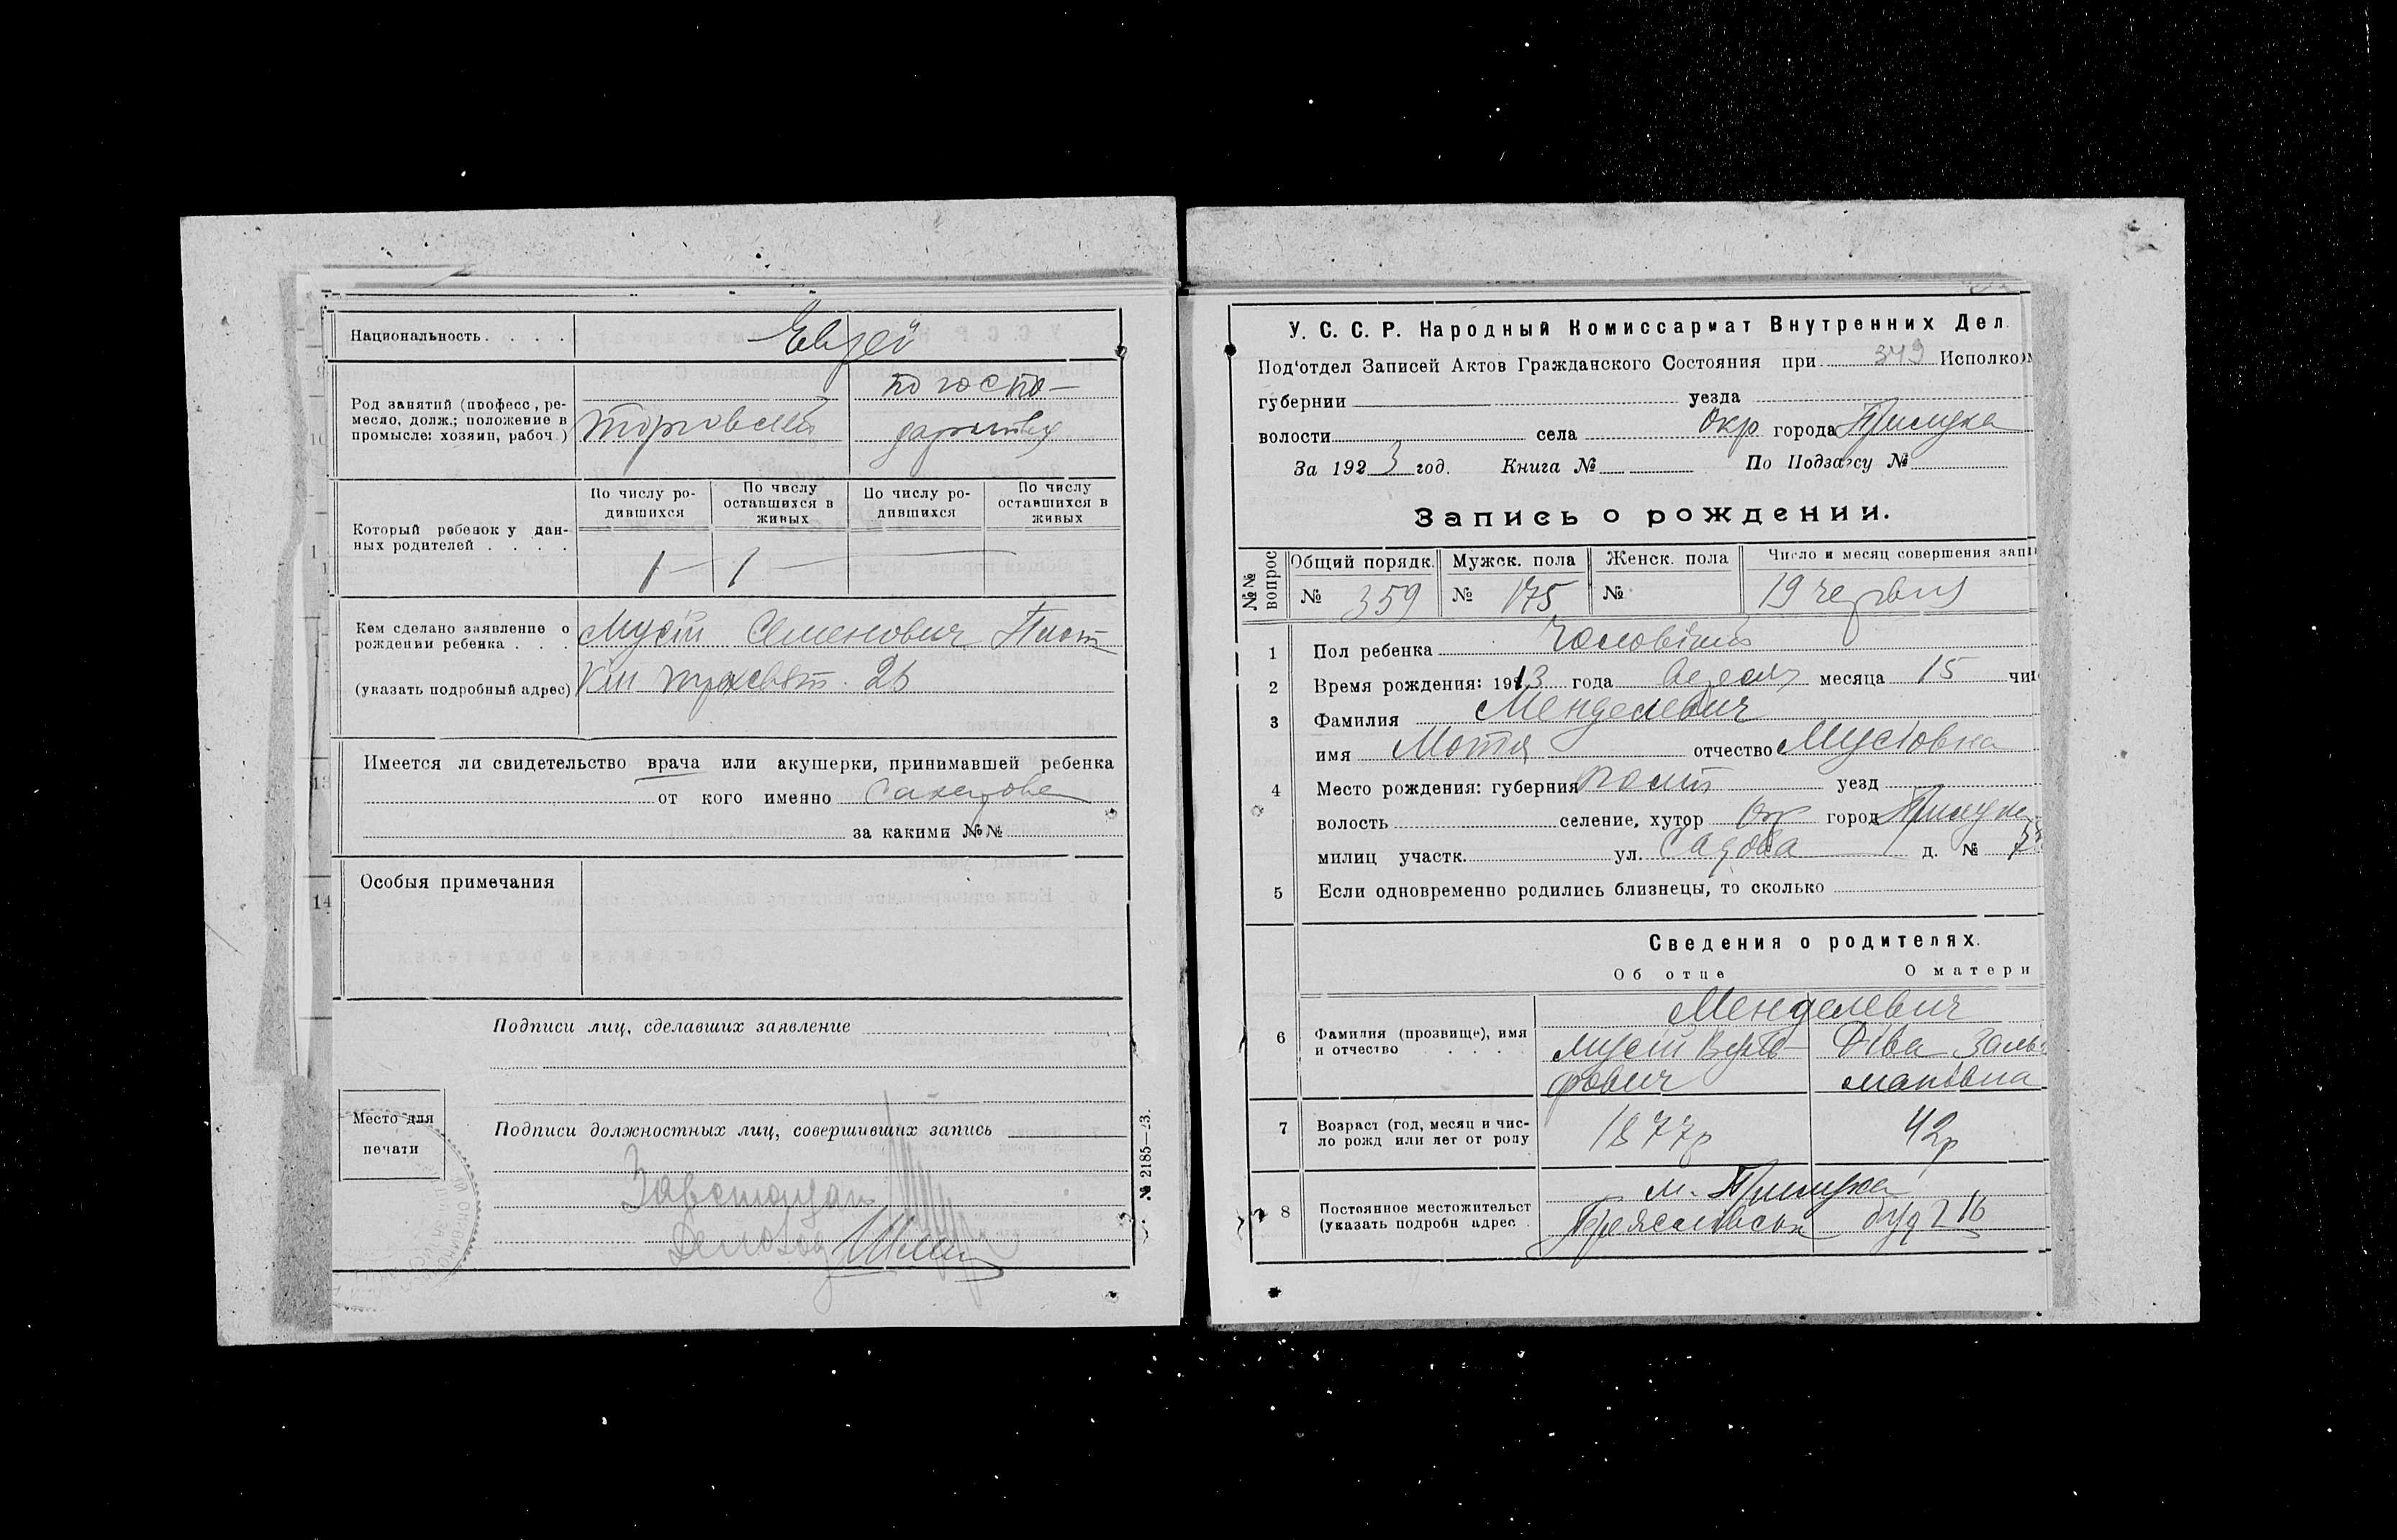 Национальность . . . . Еврей
Род занятий (професс, ре-
месло, долж.; положение в
промысле: хозяин, рабоч.)
торговець
по госпо-
дарству
Который ребенок у дан-
ных родителей . . . .
По числу ро-
дившихся
По числу
оставшихся в
живых
По числу ро-
дившихся
По числу
оставшихся в
живых
1 — 1 —
Кем сделано заявление о
рождении ребенка . . .
(указать подробный адрес)
Мусій Семенович
26
Имеется ли свидетельство врача или акушерки, принимавшей ребенка
от кого именно
за какими №№
Особыя примечания
Подписи лиц, сделавших заявление
Место для
печати
Подписи должностных лиц, совершивших запись
Завстолу
Деловод
№ 2185—23.
У. С. С. Р. Народный Комиссариат Внутренних Дел.
Под'отдел Записей Актов Гражданского Состояния при 349 Исполком
губернии уезда
волости села Окр города Прилука
За 1923 год. Книга № По Подзагсу №
Запись о рождении.
№№
вопрос
Общий порядк.
Мужск. пола
Женск. пола
Число и месяц совершения запи
№ 359
№ 175
№
19 червня
1 Пол ребенка Чоловічий
2 Время рождения: 1913 года месяца 15 чис
3 Фамилия Менделевич
имя Мотя отчество Мусіовна
4 Место рождения: губерния Полт уезд
волость селение, хутор Окр город Прилуки
милиц участк. ул. Садова д. №
5 Если одновременно родились близнецы, то сколько
Сведения о родителях.
Об отце О матери
6 Фамилия (прозвище), имя
и отчество . . . .
Менделевич
Мусій
Діва Заль
мановна
7 Возраст (год, месяц и чис-
ло рожд или лет от роду
1877р
42р
8 Постоянное местожительст
(указать подробн адрес .
м. Прилука
Переяславськ буд 216